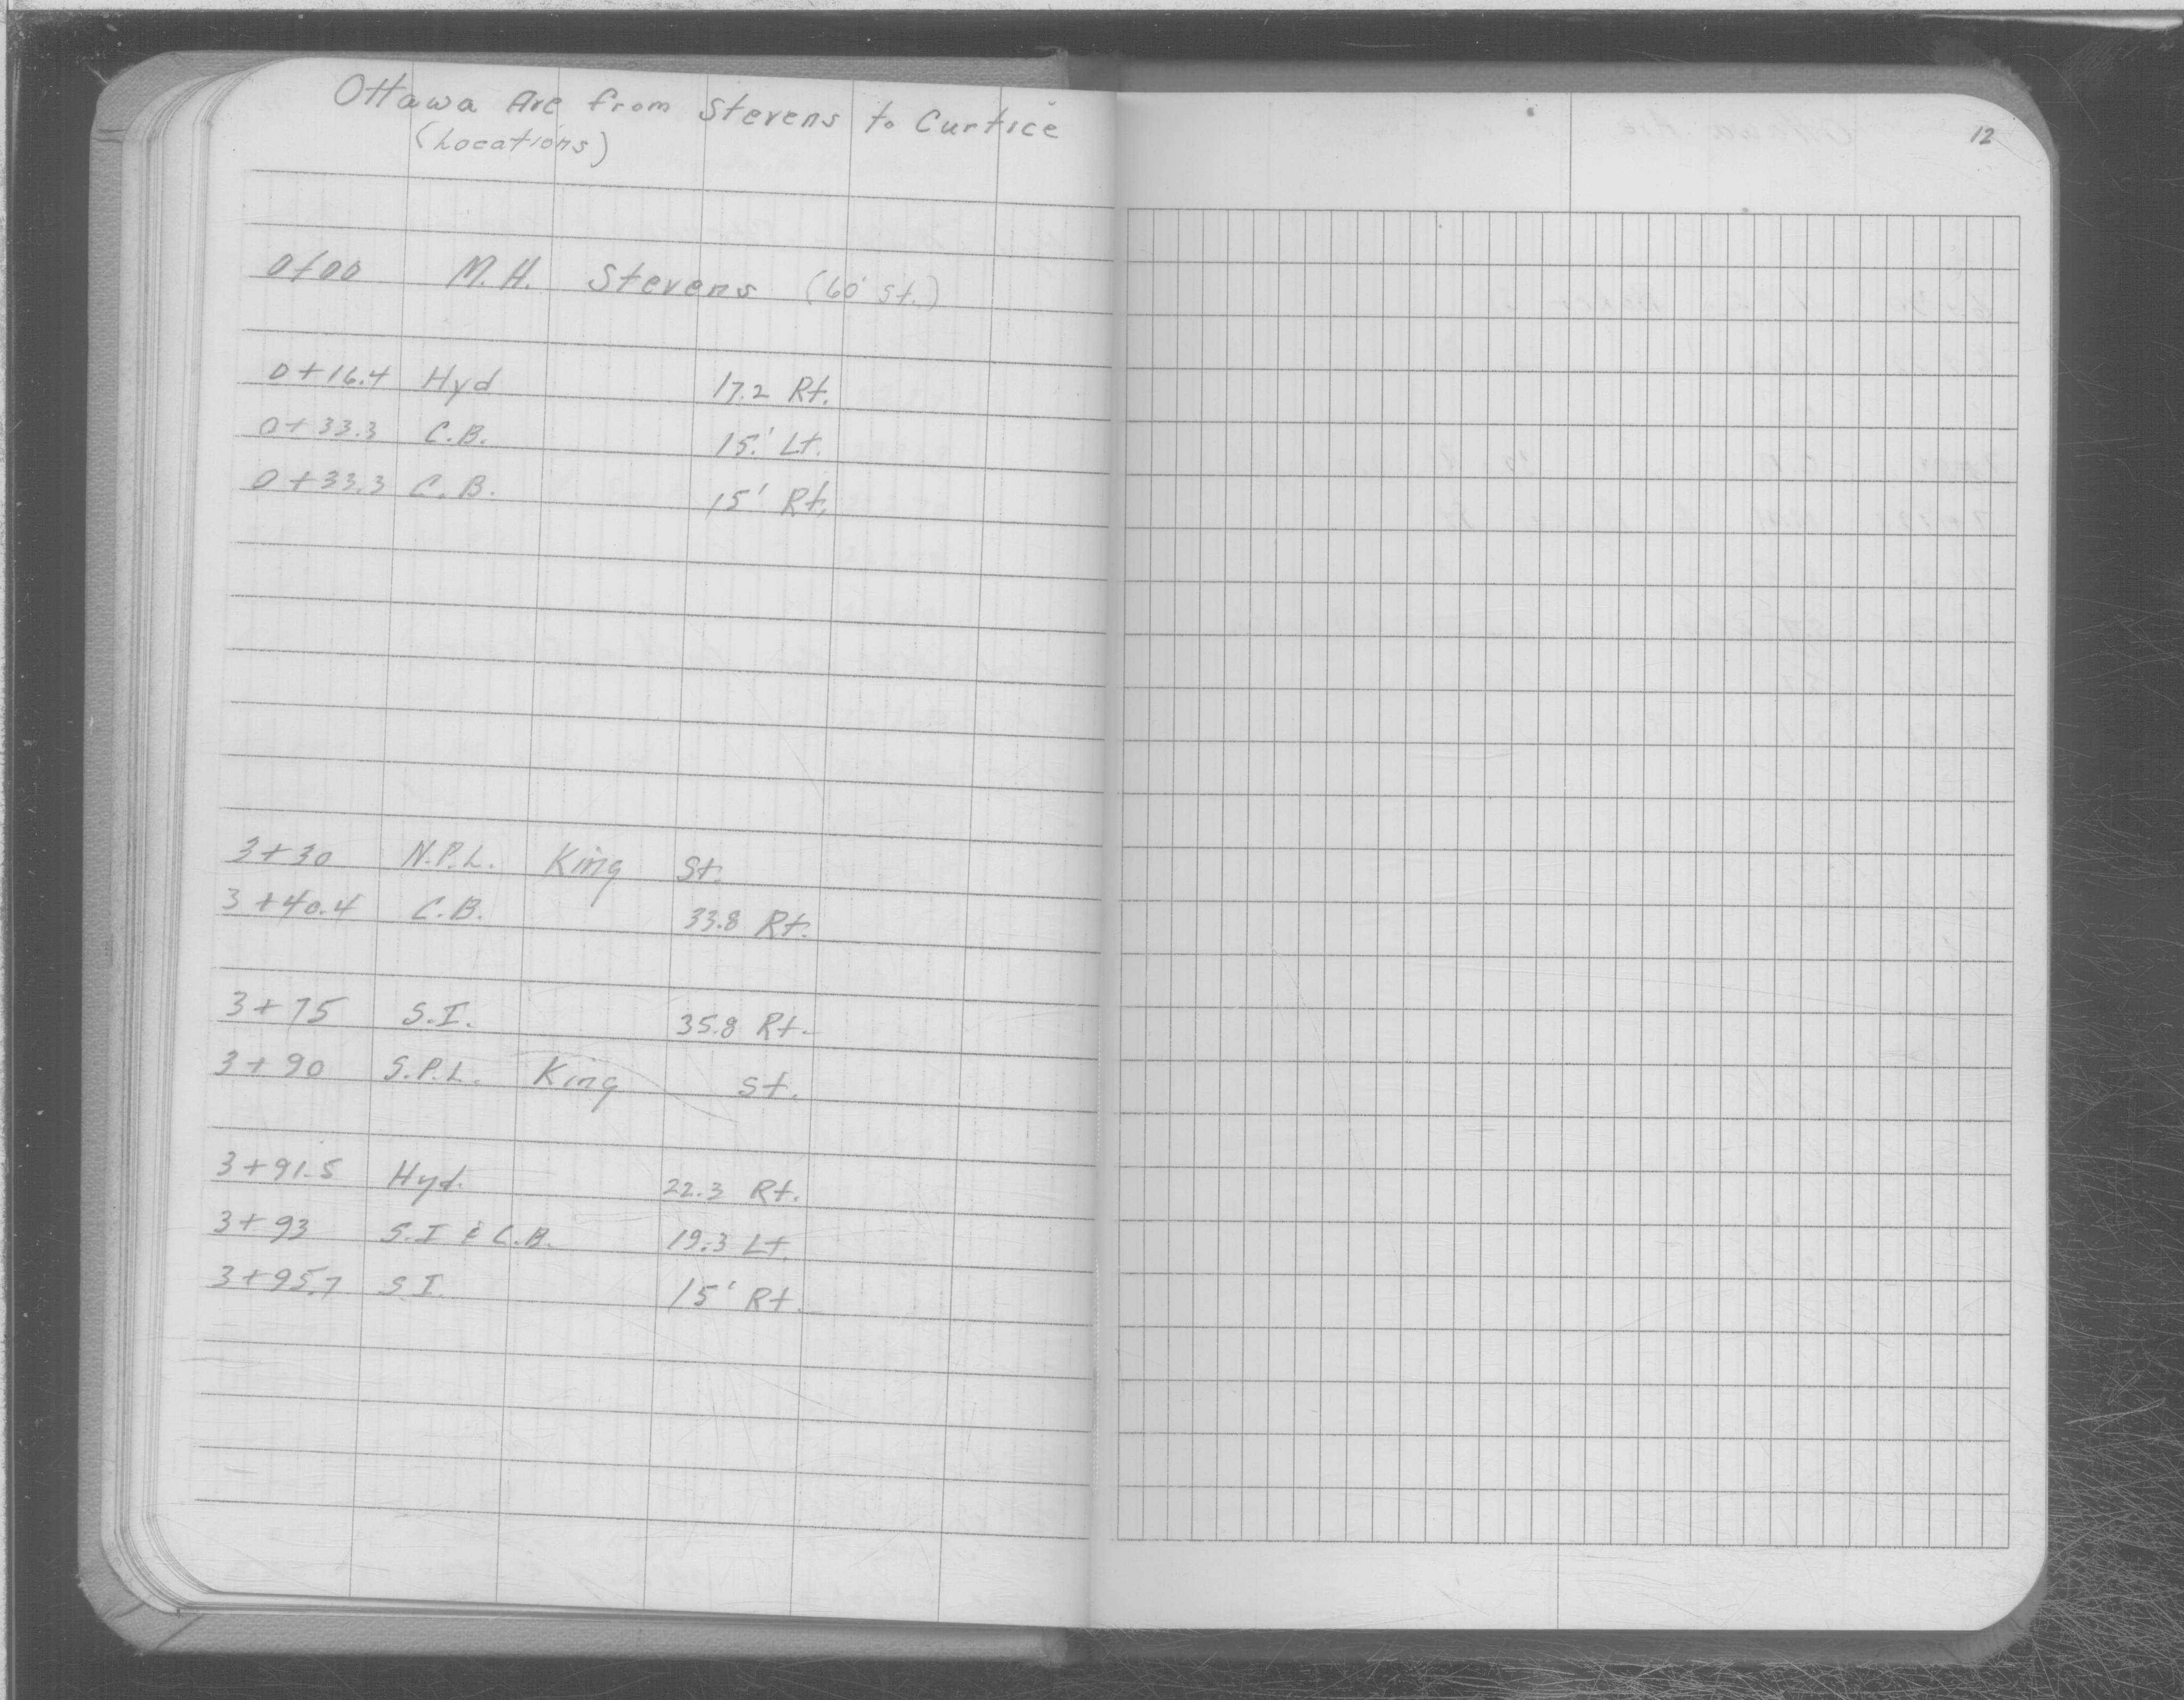 Ottawa Ave from Stevens to Curtice
(Locations)
12
0+00 M.H. Stevens (60' St.)
0+16.4 Hyd 17.2 Rt.
0+33.3 C.B. 15.' Lt.
0+33.3 C.B. 15' Rt.
3+30 N.P.L. King St.
3+40.4 C.B. 33.8 Rt.
3+75 S.I. 35.8 Rt.
3+90 S.P.L. King St.
3+91.5 Hyd. 22.3 Rt.
3+93 S.I & C.B. 19.3 Lt.
3+95.7 S.I. 15' Rt.